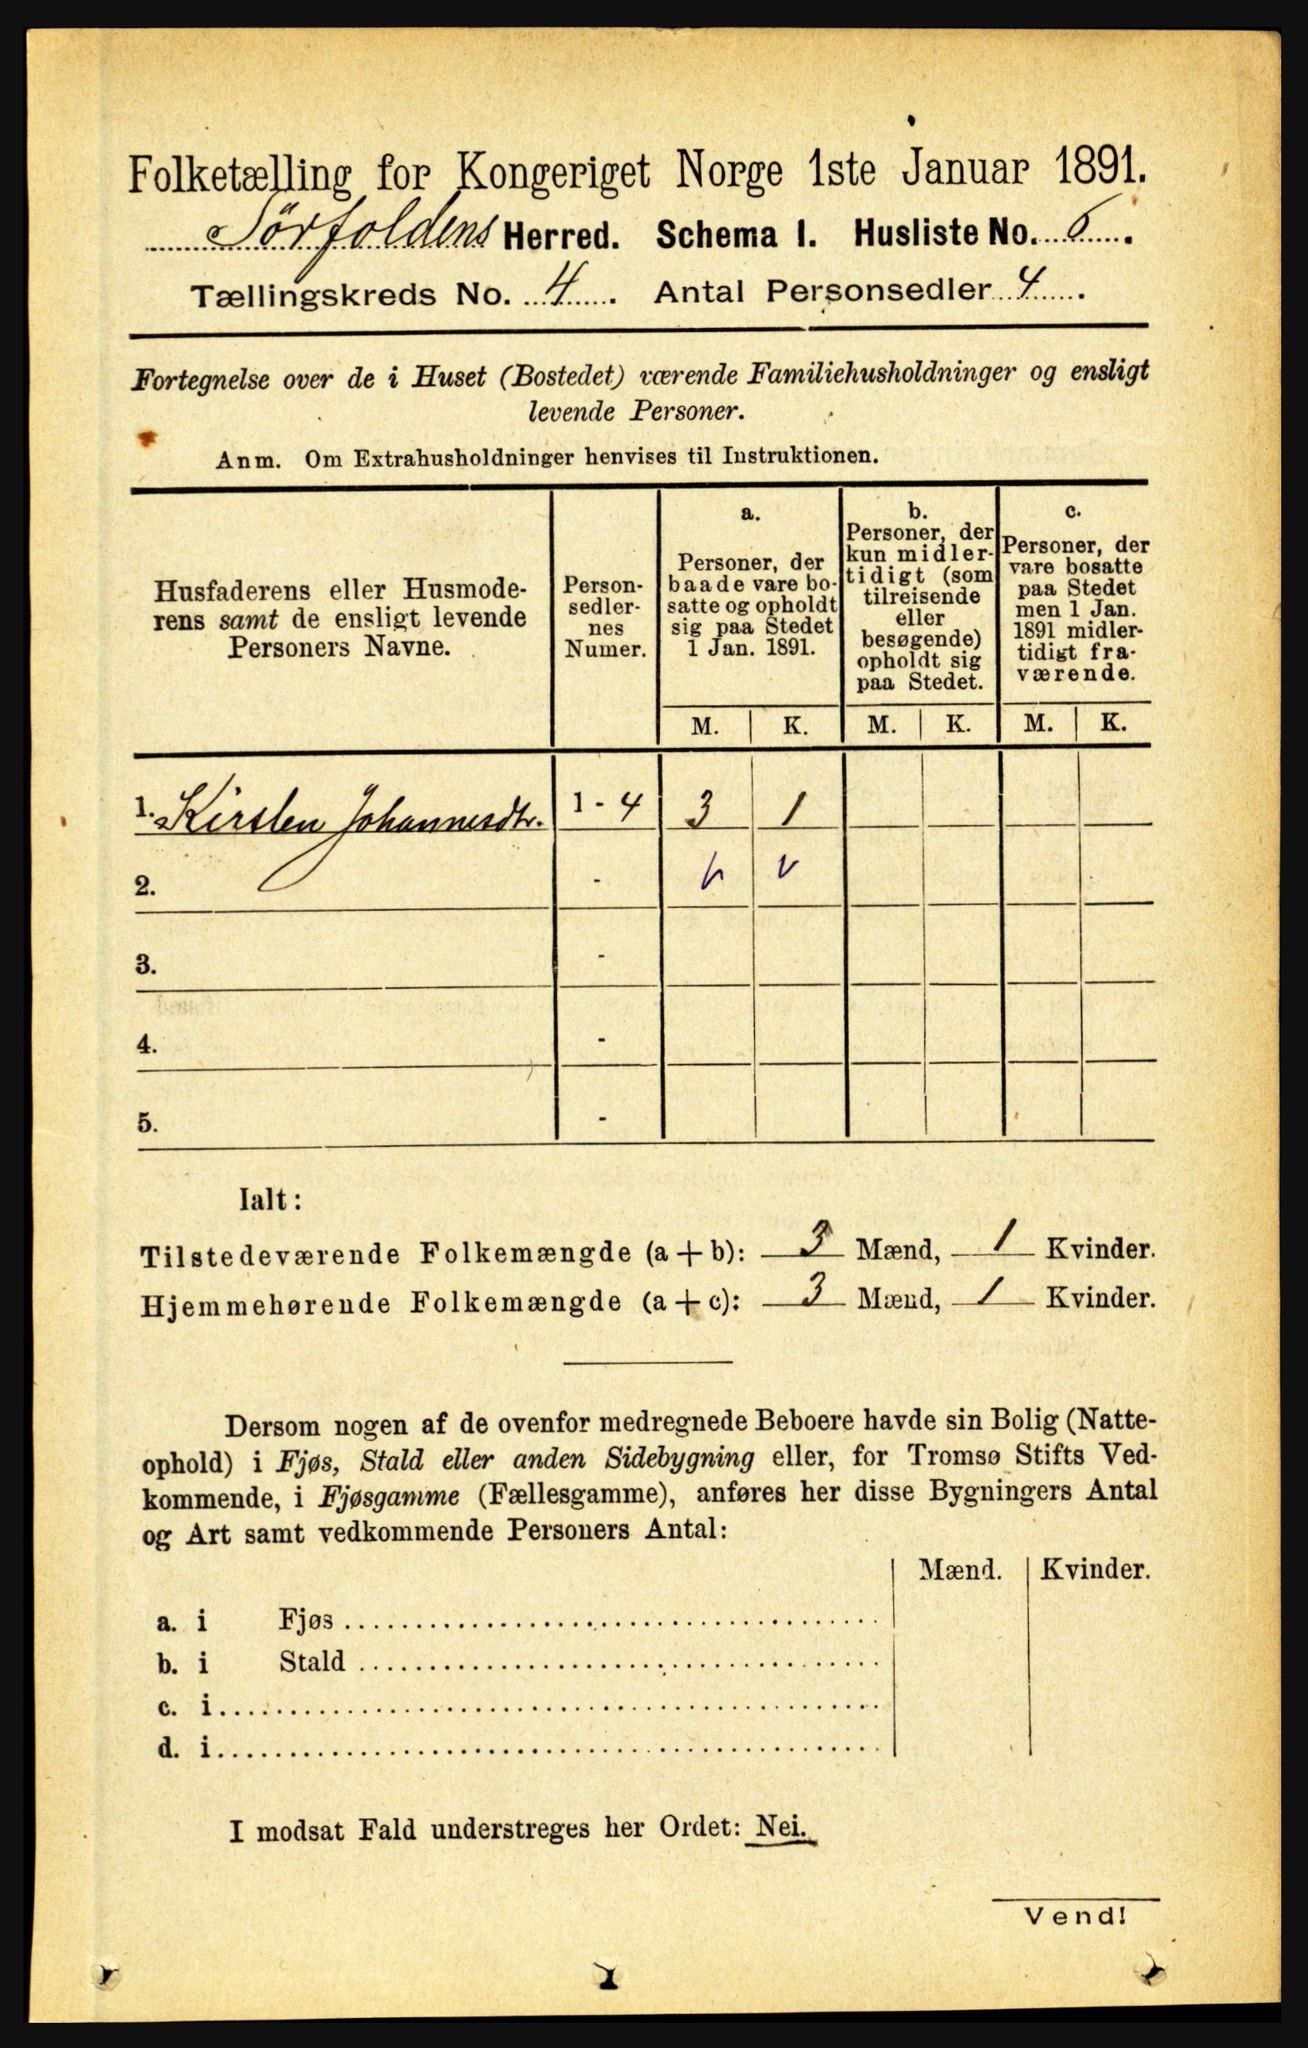 Folketælling for Kongeriget Norge 1ste Januar 1891.
Sørfoldens Herred. Schema I. Husliste No. 6.
Tællingskreds No. 4. Antal Personsedler 4.
Fortegnelse over de i Huset (Bostedet) værende Familiehusholdninger og ensligt
levende Personer.
Anm. Om Extrahusholdninger henvises til Instruktionen.
Husfaderens eller Husmode-
rens samt de ensligt levende
Personers Navne.
Person-
sedler-
nes
Numer.
a.
Personer, der
baade vare bo-
satte og opholdt
sig paa Stedet
1 Jan. 1891.
b.
Personer, der
kun midler-
tidigt (som
tilreisende
eller
besøgende)
opholdt sig
paa Stedet.
c.
Personer, der
vare bosatte
paa Stedet
men 1 Jan.
1891 midler-
tidigt fra-
værende.
M. K. M. K. M. K.
1. Kirsten Johannesdtr. 1 - 4 3 1
2. -
3. -
4. -
5. -
Ialt:
Tilstedeværende Folkemængde (a + b): 3 Mænd, 1 Kvinder.
Hjemmehørende Folkemængde (a + c): 3 Mænd, 1 Kvinder.
Dersom nogen af de ovenfor medregnede Beboere havde sin Bolig (Natte-
ophold) i Fjøs, Stald eller anden Sidebygning eller, for Tromsø Stifts Ved-
kommende, i Fjøsgamme (Fællesgamme), anføres her disse Bygningers Antal
og Art samt vedkommende Personers Antal:
Mænd. Kvinder.
a. i Fjøs
b. i Stald
c. i
d. i
I modsat Fald understreges her Ordet: Nei.
Vend!